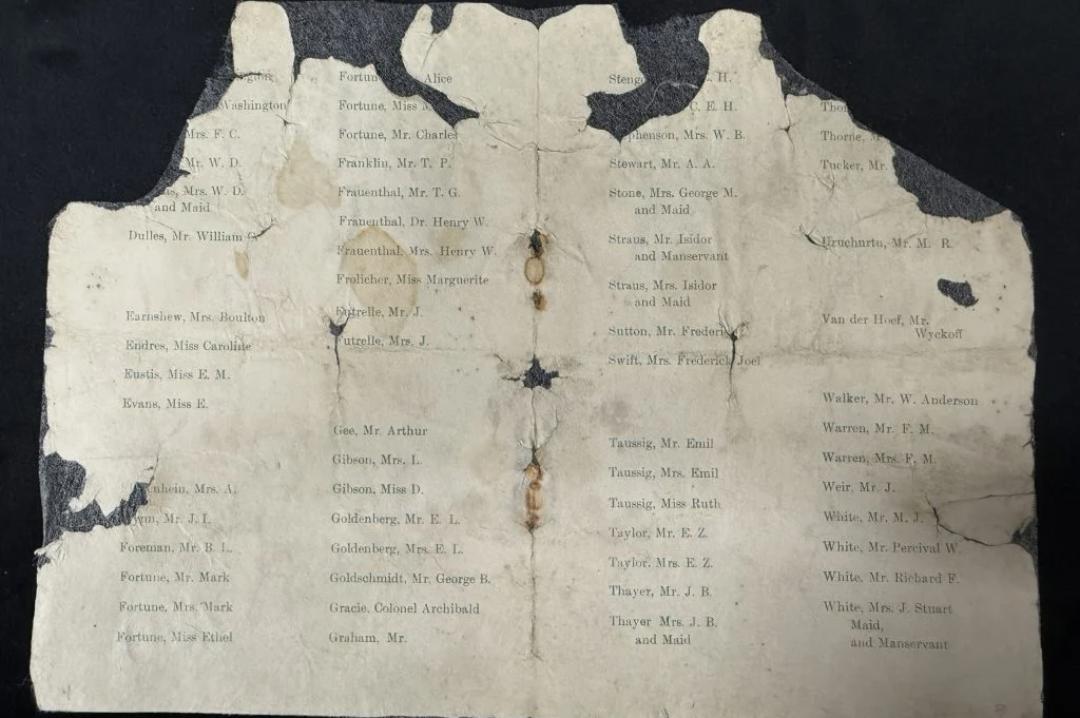 Washington
Mrs. F. C.
Mr. W. D.
Mrs. W. D.
and Maid
Dulles, Mr. William
Earnshew, Mrs. Boulton
Endres, Miss Caroline
Eustis, Miss E. M.
Evans, Miss E.
Mrs. A.
Mr. J. I.
Foreman, Mr. B. L.
Fortune, Mr. Mark
Fortune, Mrs. Mark
Fortune, Miss Ethel
Alice
Fortune, Miss
Fortune, Mr. Charles
Franklin, Mr. T. P.
Frauenthal, Mr. T. G.
Frauenthal, Dr. Henry W.
Frauenthal, Mrs. Henry W.
Frolicher, Miss Marguerite
Futrelle, Mr. J.
Futrelle, Mrs. J.
Gee, Mr. Arthur
Gibson, Mrs. L.
Gibson, Miss D.
Goldenberg, Mr. E. L.
Goldenberg, Mrs. E. L.
Goldschmidt, Mr. George B.
Gracie, Colonel Archibald
Graham, Mr.
H.
C. E. H.
Mrs. W. B.
Stewart, Mr. A. A.
Stone, Mrs. George M.
and Maid
Straus, Mr. Isidor
and Manservant
Straus, Mrs. Isidor
and Maid
Sutton, Mr.
Swift, Mrs. Frederick Joel
Taussig, Mr. Emil
Taussig, Mrs. Emil
Taussig, Miss Ruth
Taylor, Mr. E. Z.
Taylor, Mrs. E. Z.
Thayer, Mr. J. B.
Thayer Mrs. J. B.
and Maid
Thorne,
Tucker, Mr.
Uruchurtu, Mr. M. R.
Van der Hoef, Mr.
Wyckoff
Walker, Mr. W. Anderson
Warren, Mr. F. M.
Warren, Mrs. F. M.
Weir, Mr. J.
White, Mr. M. J.
White, Mr. Percival W.
White, Mr. Richard F.
White, Mrs. J. Stuart
Maid,
and Manservant